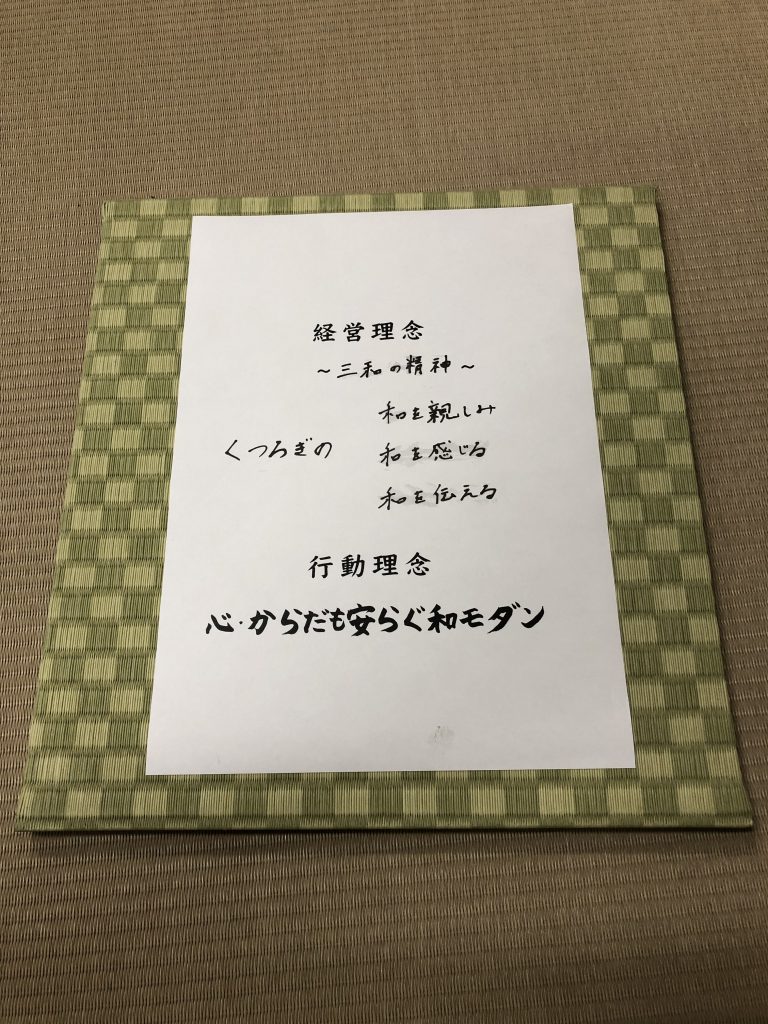 経営理念
～三和の精神～
和を親しみ
くつろぎの 和を感じる
和を伝える
行動理念
心・からだも安らぐ和モダン